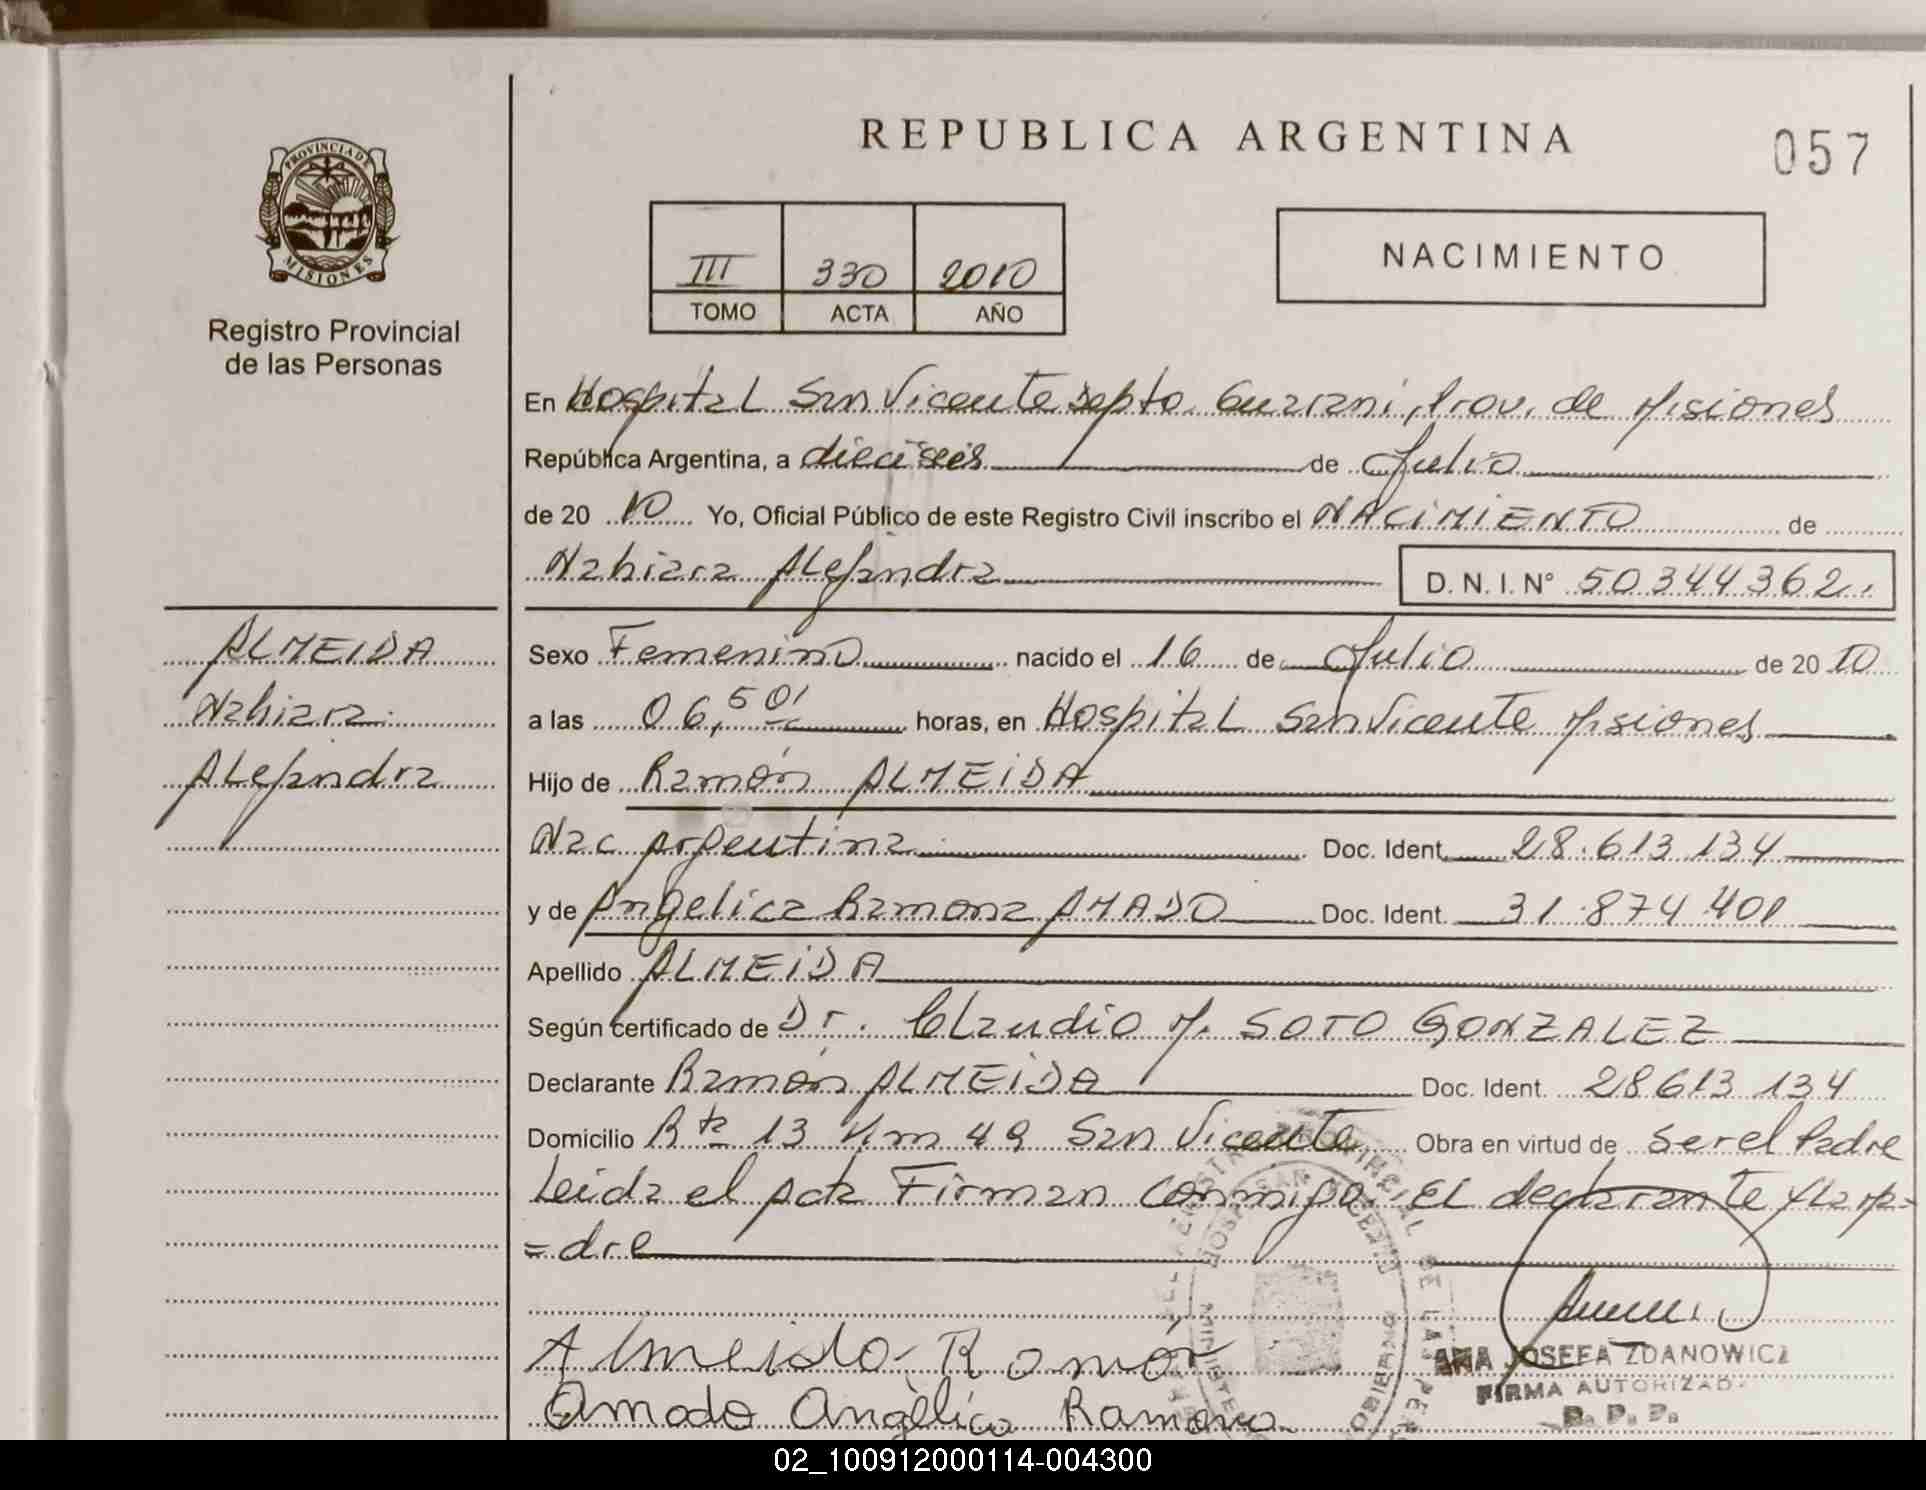 REPUBLICA ARGENTINA
057
PROVINCIA DE
MISIONES
Registro Provincial
de las Personas
III 330 2010
TOMO ACTA AÑO
NACIMIENTO
En Hospital San Vicente Depto. Guarani, Prov. de Misiones
República Argentina, a dieciseis de Julio
de 20 10 Yo, Oficial Público de este Registro Civil inscribo el NACIMIENTO de
Nahiara Alejandra D.N.I.N° 50344362
ALMEIDA
Nahiara
Alejandra
Sexo Femenino nacido el 16 de Julio de 20 10
a las 06,50' horas, en Hospital San Vicente Misiones
Hijo de Ramón ALMEIDA
Nac Argentina Doc. Ident. 28.613.134
y de Angelica Ramona AMADO Doc. Ident. 31.874.401
Apellido ALMEIDA
Según certificado de Dr. Claudio M. SOTO GONZALEZ
Declarante Ramón ALMEIDA Doc. Ident. 28613134
Domicilio Rta 13 Km 49 San Vicente Obra en virtud de ser el Padre
Leida el Acta Firman conmigo, EL declarante y La Ma=
=dre
Almeida Ramón
Amado Angèlica Ramona
ANA JOSEFA ZDANOWICZ
FIRMA AUTORIZADA
R. P. P.
02_100912000114-004300